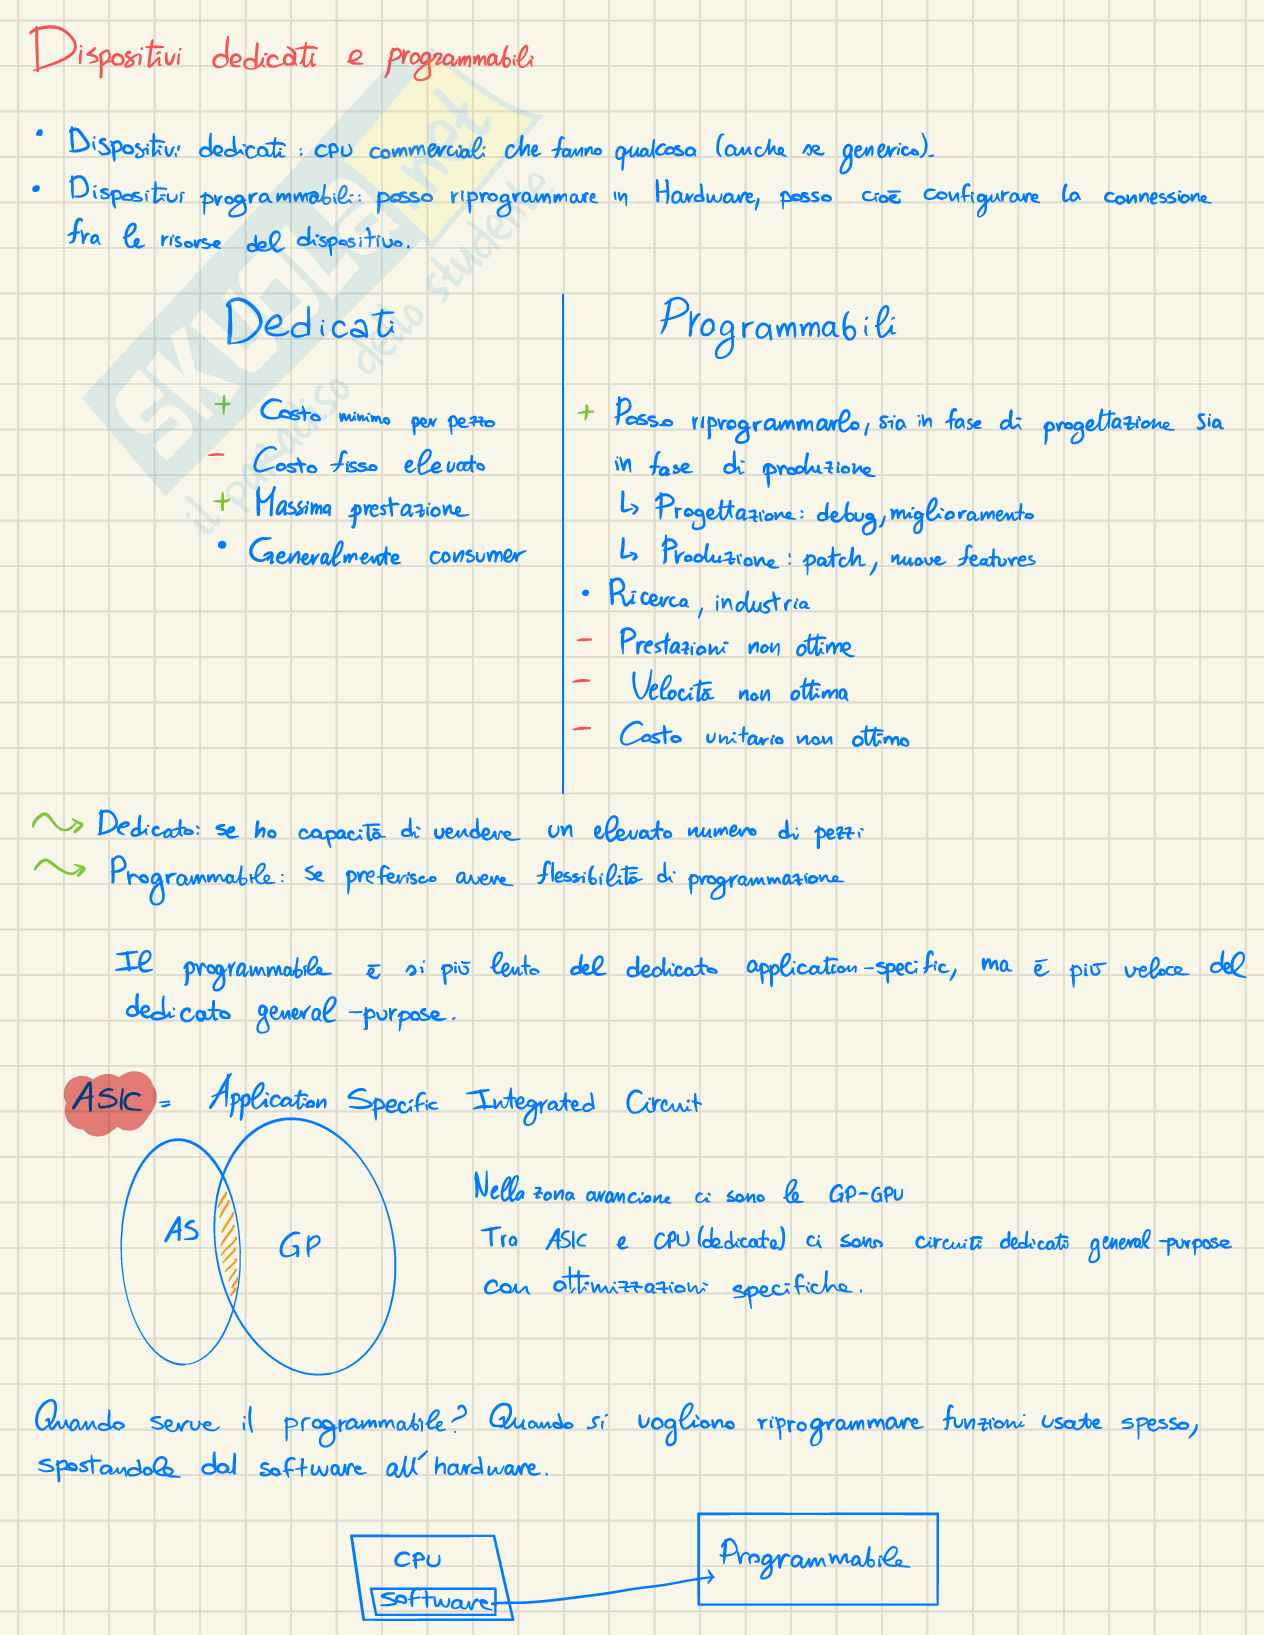 Dispositivi dedicati e programmabili
• Dispositivi dedicati: CPU commerciali che fanno qualcosa (anche se generico).
• Dispositivi programmabili: posso riprogrammare in Hardware, posso cioè configurare la connessione
fra le risorse del dispositivo.
Dedicati
+ Costo minimo per pezzo
- Costo fisso elevato
+ Massima prestazione
• Generalmente consumer
Programmabili
+ Posso riprogrammarlo, sia in fase di progettazione sia
in fase di produzione
↳ Progettazione: debug, miglioramento
↳ Produzione: patch, nuove features
• Ricerca, industria
- Prestazioni non ottime
- Velocità non ottima
- Costo unitario non ottimo
Dedicato: se ho capacità di vendere un elevato numero di pezzi
Programmabile: se preferisco avere flessibilità di programmazione
Il programmabile è sì più lento del dedicato application-specific, ma è più veloce del
dedicato general-purpose.
ASIC = Application Specific Integrated Circuit
AS
GP
Nella zona arancione ci sono le GP-GPU
Tra ASIC e CPU (dedicate) ci sono circuiti dedicati general-purpose
con ottimizzazioni specifiche.
Quando serve il programmabile? Quando si vogliono riprogrammare funzioni usate spesso,
spostandole dal software all'hardware.
CPU
Software
Programmabile
SKUOLA.net
il paradiso dello studente